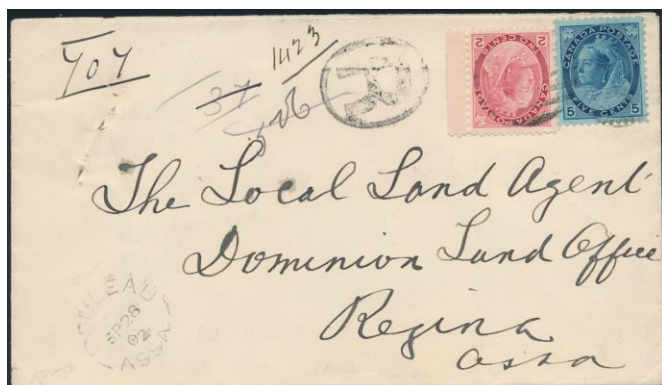 404
1423
37
R
CANADA POSTAGE
TWO CENTS
2 2
CANADA POSTAGE
FIVE CENTS
5 5
The Local Land Agent
Dominion Land Office
Regina
Assa
ROULEAU
SP 28
02
ASSA